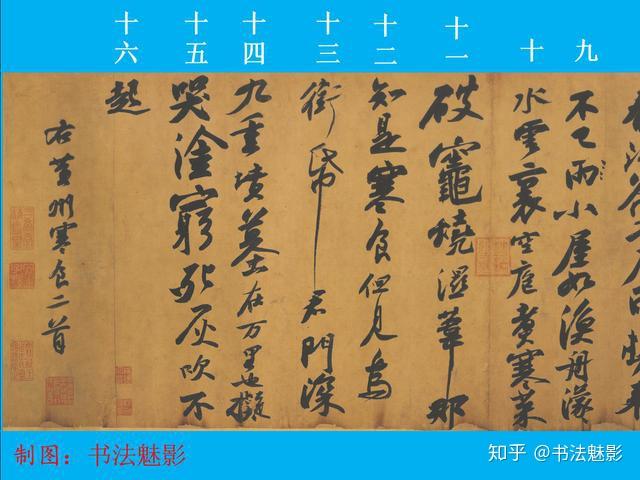 九
十
十一
十二
十三
十四
十五
十六
不已雨小屋如漁舟濛
水雲裏空庖煮寒菜
破竈燒濕葦那
知是寒食但見烏
銜帋君門深
九重墳墓在万里也擬
哭塗窮死灰吹不
起
右黄州寒食二首
制图：书法魅影
知乎 @书法魅影